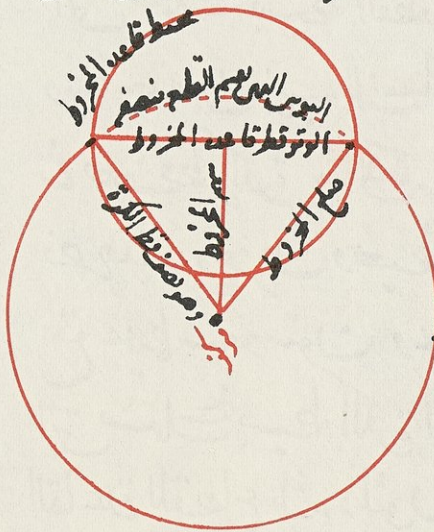 محيط قاعدة المخروط
القوس التى تقسم القطع بنصفين
الوتر وقطر قاعدة المخروط
سهم المخروط
ضلع المخروط
وهو نصف قطر الكرة
مركز